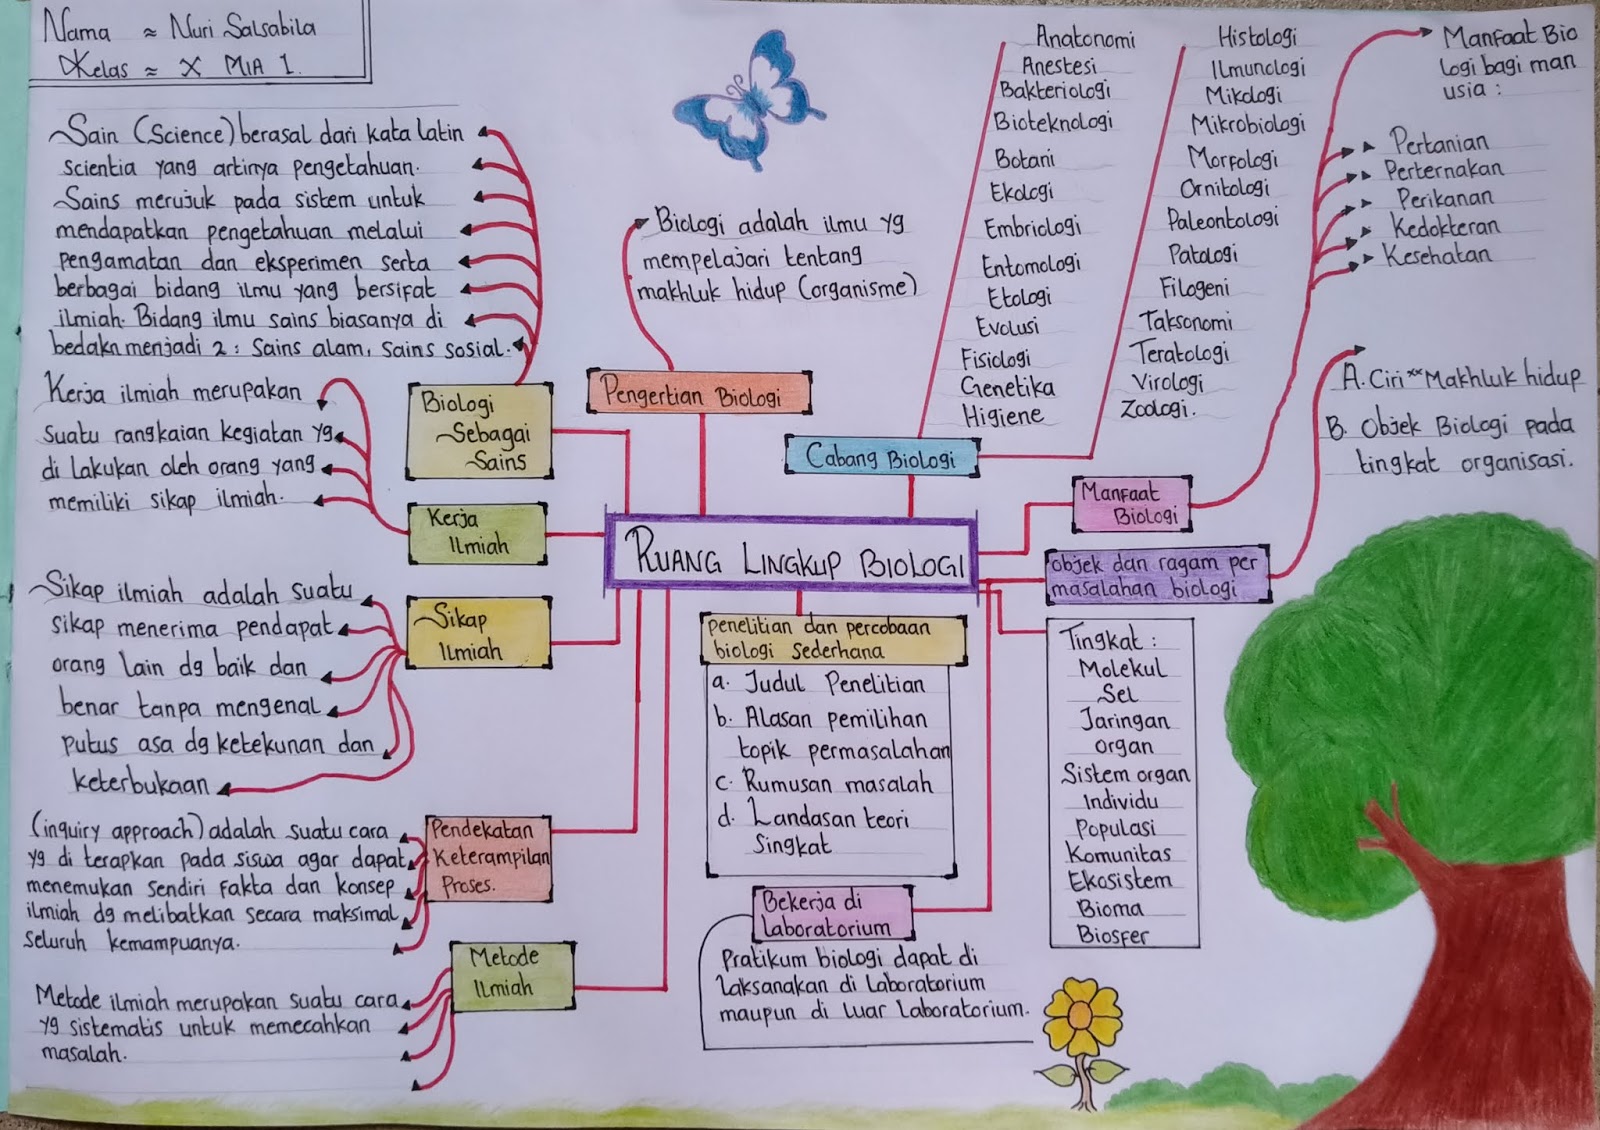 Nama ≈ Nuri Salsabila
Kelas ≈ X MIA 1.
Sain (Science) berasal dari kata latin
scientia yang artinya pengetahuan.
Sains merujuk pada sistem untuk
mendapatkan pengetahuan melalui
pengamatan dan eksperimen serta
berbagai bidang ilmu yang bersifat
ilmiah. Bidang ilmu sains biasanya di
bedakn menjadi 2 : Sains alam, Sains sosial.
Biologi
Sebagai
Sains
Kerja ilmiah merupakan
suatu rangkaian kegiatan yg
di lakukan oleh orang yang
memiliki sikap ilmiah.
Kerja
Ilmiah
Sikap ilmiah adalah suatu
sikap menerima pendapat
orang lain dg baik dan
benar tanpa mengenal
putus asa dg ketekunan dan
keterbukaan
Sikap
Ilmiah
(inquiry approach) adalah suatu cara
yg di terapkan pada siswa agar dapat
menemukan sendiri fakta dan konsep
ilmiah dg melibatkan secara maksimal
seluruh kemampuanya.
Pendekatan
Keterampilan
Proses.
Metode ilmiah merupakan suatu cara
yg sistematis untuk memecahkan
masalah.
Metode
Ilmiah
Biologi adalah ilmu yg
mempelajari tentang
makhluk hidup (organisme)
Pengertian Biologi
RUANG LINGKUP BIOLOGI
Cabang Biologi
Anatonomi
Anestesi
Bakteriologi
Bioteknologi
Botani
Ekologi
Embriologi
Entomologi
Etologi
Evolusi
Fisiologi
Genetika
Higiene
Histologi
Ilmunologi
Mikologi
Mikrobiologi
Morfologi
Ornitologi
Paleontologi
Patologi
Filogeni
Taksonomi
Teratologi
Virologi
Zoologi.
Manfaat
Biologi
Manfaat Bio
logi bagi man
usia :
Pertanian
Perternakan
Perikanan
Kedokteran
Kesehatan
objek dan ragam per
masalahan biologi
A. Ciri** Makhluk hidup
B. Objek Biologi pada
tingkat organisasi.
Tingkat :
Molekul
Sel
Jaringan
organ
Sistem organ
Individu
Populasi
Komunitas
Ekosistem
Bioma
Biosfer
penelitian dan percobaan
biologi sederhana
a. Judul Penelitian
b. Alasan pemilihan
topik permasalahan
c. Rumusan masalah
d. Landasan teori
Singkat
Bekerja di
laboratorium
Pratikum biologi dapat di
laksanakan di laboratorium
maupun di luar laboratorium.